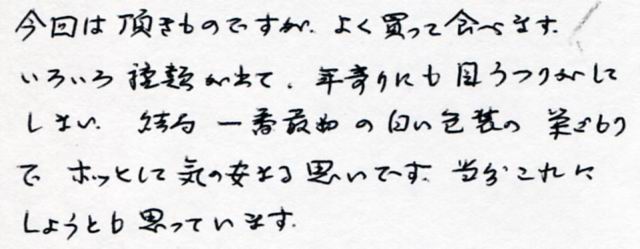 今回は頂きものですが、よく買って食べます。
いろいろ種類が出て、年寄りにも目うつりがして
しまい、結局一番最初の白い包装の
で ホッとして気の安まる思いです。当分これに
しようとも思っています。